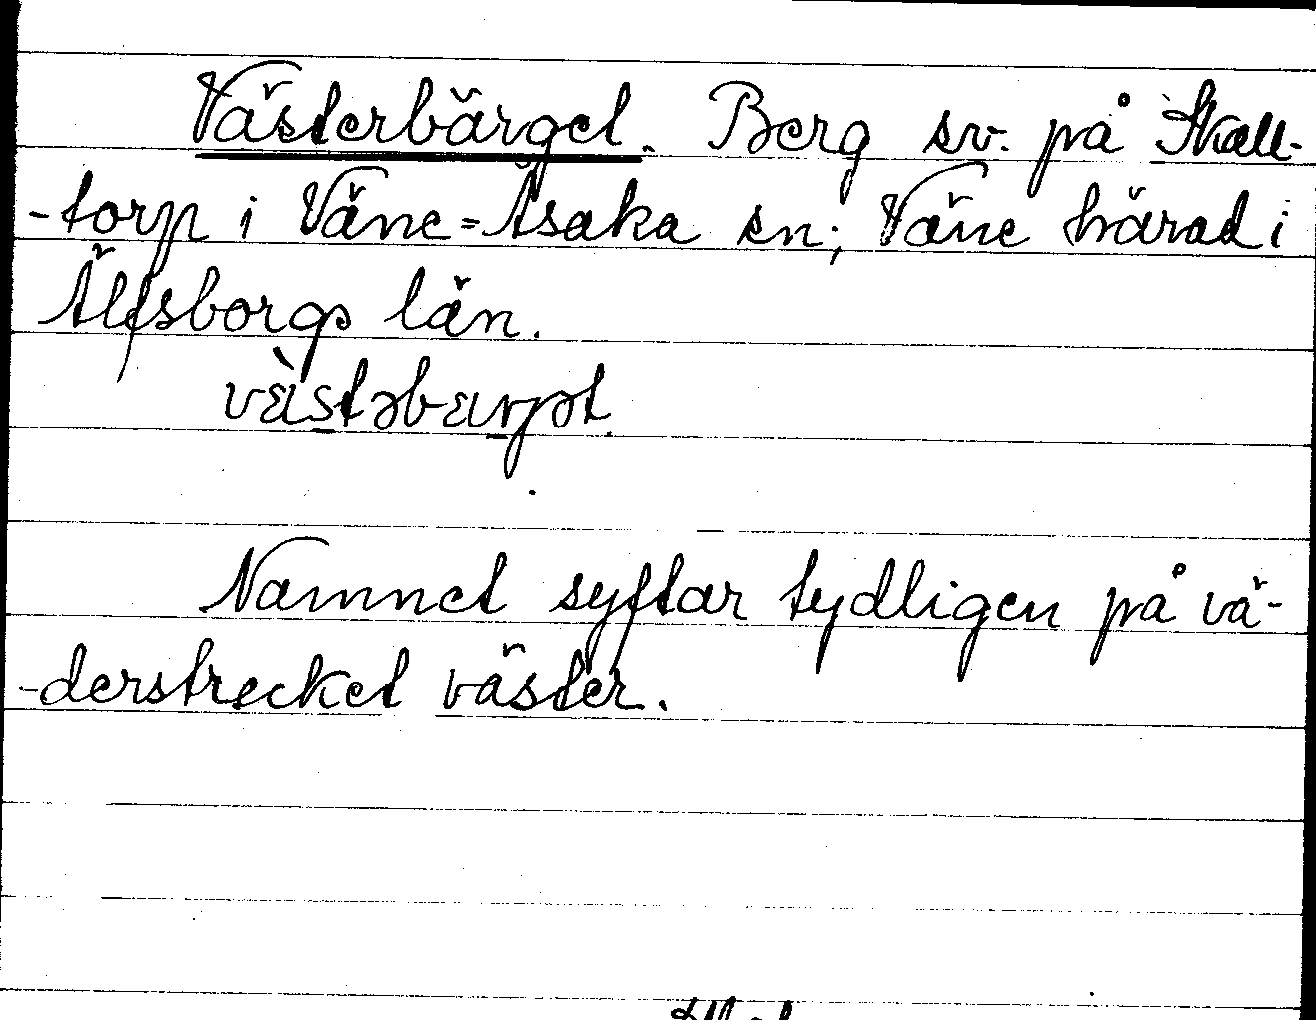 Västerbärget. Berg sv. på Skall-
-torp i Väne=Åsaka sn; Väne härad i
Älfsborgs län.
Namnet syftar tydligen på vä-
-derstrecket väster.